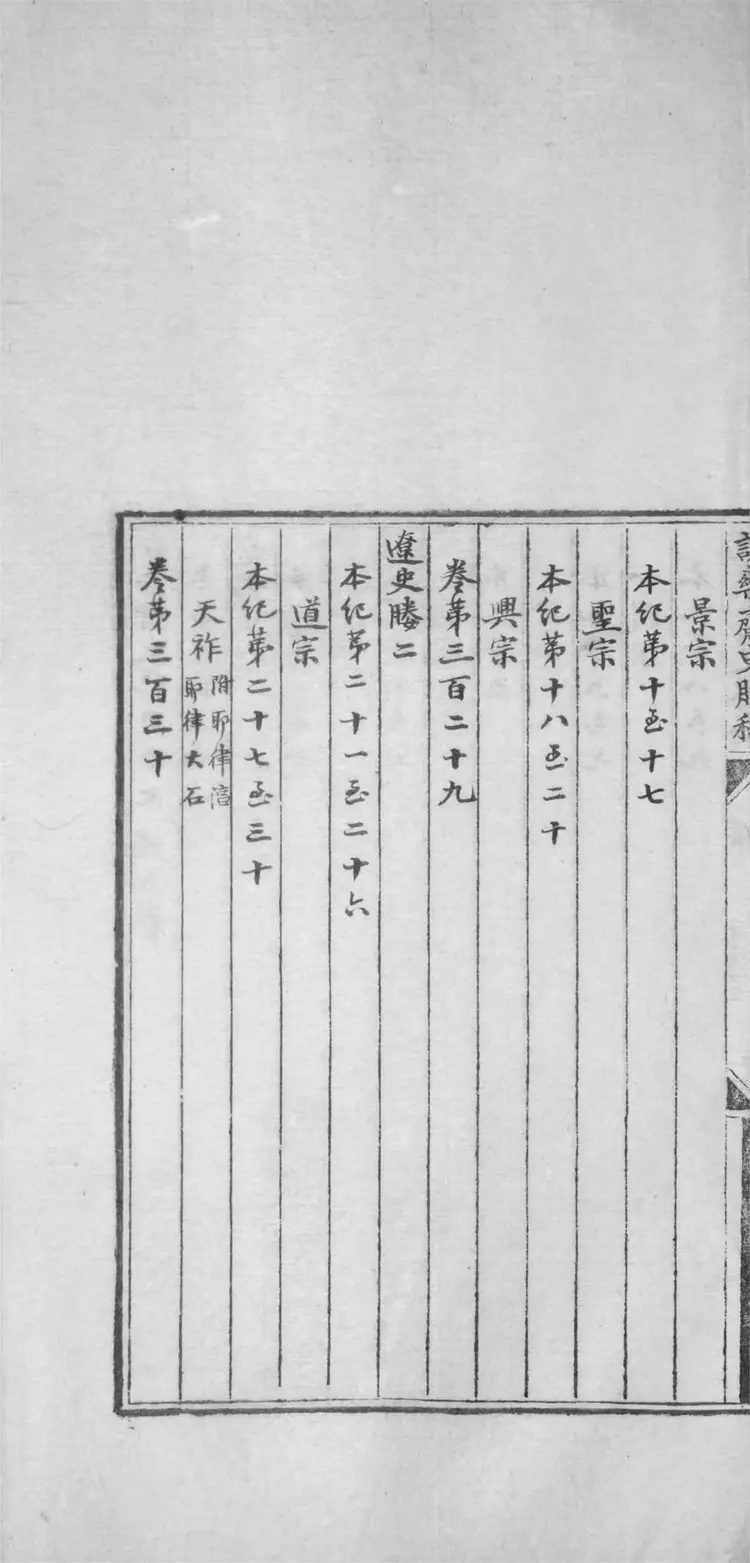 景宗
本紀第十至十七
聖宗
本紀第十八至二十
興宗
卷第三百二十九
遼史賸二
本紀第二十一至二十六
道宗
本紀第二十七至三十
天祚附耶律淳耶律大石
卷第三百三十